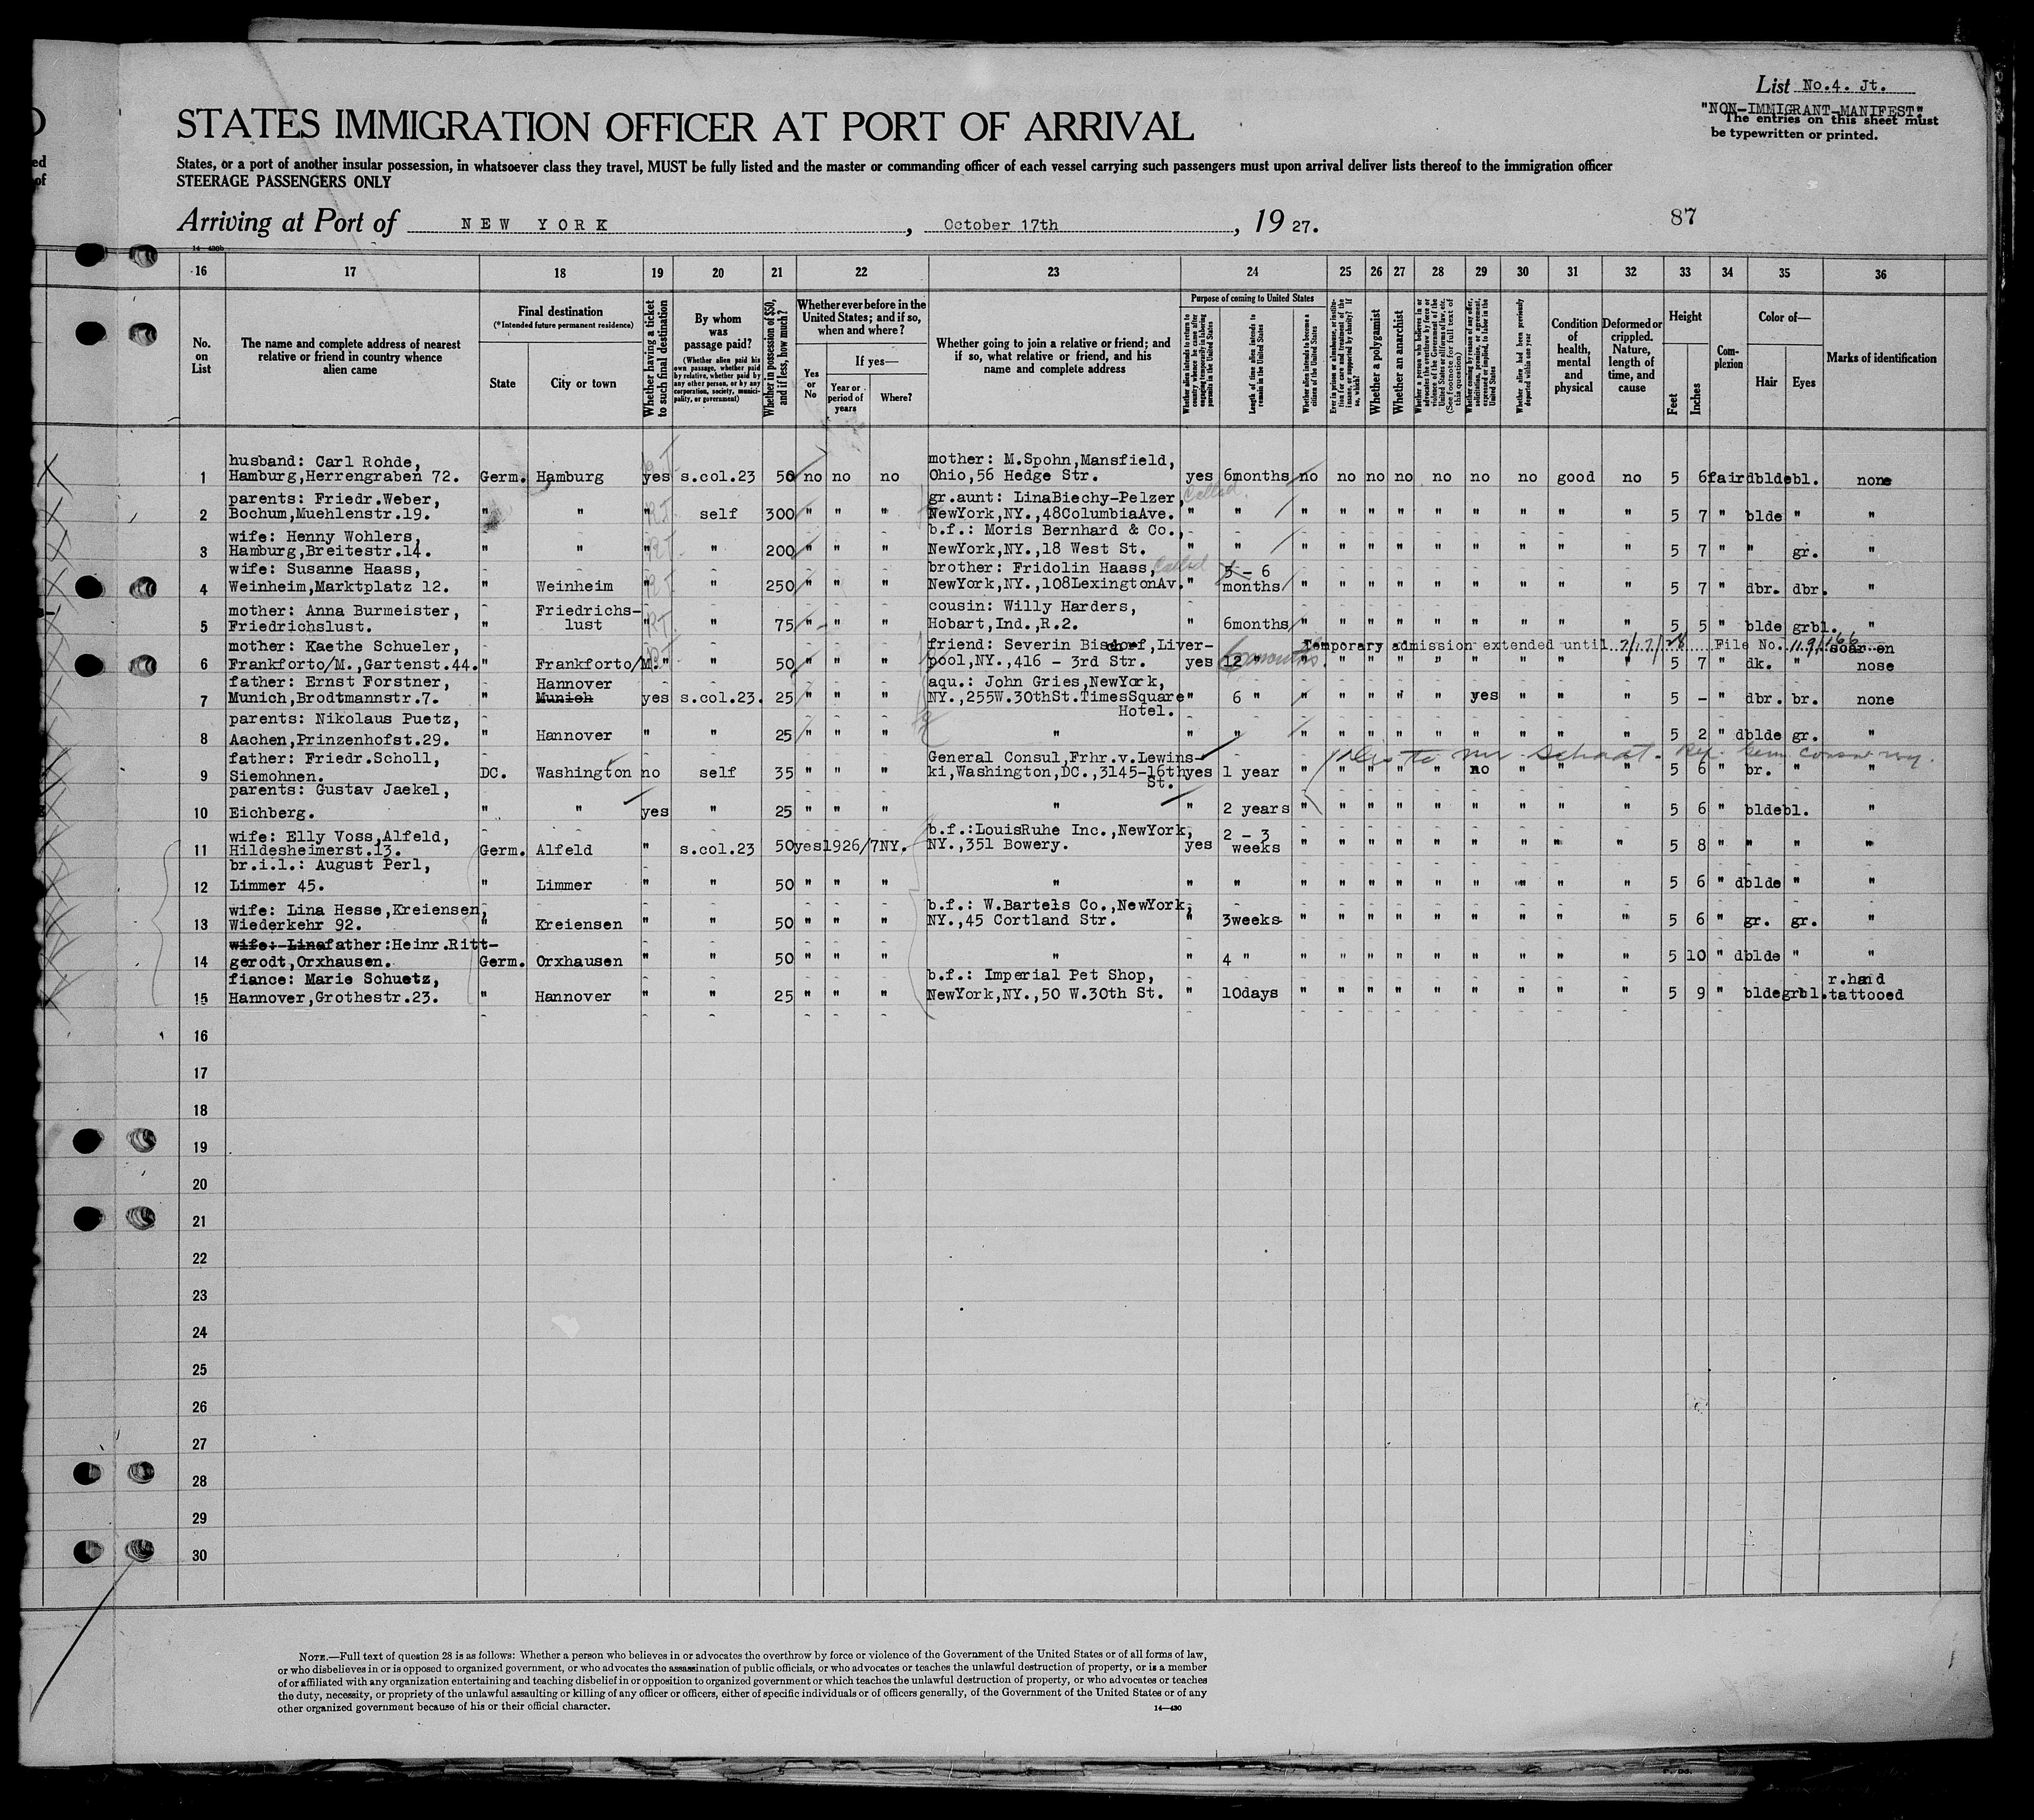 List No.4. Jt.
"NON-IMMIGRANT-MANIFEST".
The entries on this sheet must
be typewritten or printed.
STATES IMMIGRATION OFFICER AT PORT OF ARRIVAL
States, or a port of another insular possession, in whatsoever class they travel, MUST be fully listed and the master or commanding officer of each vessel carrying such passengers must upon arrival deliver lists thereof to the immigration officer
STEERAGE PASSENGERS ONLY
Arriving at Port of NEW YORK, October 17th, 19 27.
87
16 17 18 19 20 21 22 23 24 25 26 27 28 29 30 31 32 33 34 35 36
No. on List
The name and complete address of nearest relative or friend in country whence alien came
Final destination
(*Intended future permanent residence)
State
City or town
Whether having a ticket to such final destination
By whom was passage paid?
(Whether alien paid his own passage, whether paid by relative, whether paid by any other person, or by any corporation, society, municipality, or government)
Whether in possession of $50, and if less, how much?
Whether ever before in the United States; and if so, when and where?
Yes or No
If yes—
Year or period of years
Where?
Whether going to join a relative or friend; and if so, what relative or friend, and his name and complete address
Purpose of coming to United States
Whether alien intends to return to country whence he came after engaging temporarily in laboring pursuits in the United States
Length of time alien intends to remain in the United States
Whether alien intends to become a citizen of the United States
Ever in prison or almshouse, or institution for care and treatment of the insane, or supported by charity? If so, which?
Whether a polygamist
Whether an anarchist
Whether a person who believes in or advocates the overthrow by force or violence of the Government of the United States or all forms of law, etc. (See footnote for full text of this question)
Whether coming by reason of any offer, solicitation, promise, or agreement, expressed or implied, to labor in the United States
Whether alien had been previously deported within one year
Condition of health, mental and physical
Deformed or crippled. Nature, length of time, and cause
Height
Feet
Inches
Complexion
Color of—
Hair
Eyes
Marks of identification
1 husband: Carl Rohde,
Hamburg,Herrengraben 72. Germ. Hamburg yes s.col.23 50 no no no mother: M.Spohn,Mansfield,
Ohio,56 Hedge Str. yes 6months no no no no no no no good no 5 6 fair dblde bl. none
2 parents: Friedr.Weber,
Bochum,Muehlenstr.19. " " " self 300 " " " gr.aunt: LinaBiechy-Pelzer,
NewYork,NY.,48ColumbiaAve. " " " " " " " " " " " 5 7 " blde " "
3 wife: Henny Wohlers,
Hamburg,Breitestr.14. " " " " 200 " " " b.f.: Moris Bernhard & Co.,
NewYork,NY.,18 West St. " " " " " " " " " " " 5 7 " " gr. "
4 wife: Susanne Haass,
Weinheim,Marktplatz 12. " Weinheim " " 250 " " " brother: Fridolin Haass,
NewYork,NY.,108LexingtonAv. " 5 - 6
months " " " " " " " " " 5 7 " dbr. dbr. "
5 mother: Anna Burmeister,
Friedrichslust. " Friedrichs-
lust " " 75 " " " cousin: Willy Harders,
Hobart,Ind.,R.2. " 6months " " " " " " " " " 5 5 " blde grbl. "
Temporary admission extended until 7/17/28 File No.
6 mother: Kaethe Schueler,
Frankforto/M.,Gartenst.44. " Frankforto/M. " " 50 " " " friend: Severin Bisdorf,Liver-
pool,NY.,416 - 3rd Str. yes 12 " 6 months " " " " " " " " " 5 7 " dk. " scar on
nose
7 father: Ernst Forstner,
Munich,Brodtmannstr.7. " Hannover
Munich yes s.col.23. 25 " " " aqu.: John Gries,NewYork,
NY.,255W.30thSt.TimesSquare
Hotel. " 6 " " " " " " yes " " " 5 - " dbr. br. none
8 parents: Nikolaus Puetz,
Aachen,Prinzenhofst.29. " Hannover " " 25 " " " " " " " " " " " " " " " 5 2 " dblde gr. "
9 father: Friedr.Scholl,
Siemohnen. DC. Washington no self 35 " " " General Consul,Frhr.v.Lewins-
ki,Washington,DC.,3145-16th
St. yes 1 year " " " " " no " " " 5 6 " br. " "
10 parents: Gustav Jaekel,
Eichberg. " " yes " 25 " " " " " 2 years " " " " " " " " " 5 6 " blde bl. "
11 wife: Elly Voss,Alfeld,
Hildesheimerst.13. Germ. Alfeld " s.col.23 50 yes 1926/7 NY. b.f.:LouisRuhe Inc.,NewYork,
NY.,351 Bowery. yes 2 - 3
weeks " " " " " " " " " 5 8 " " " "
12 br.i.l.: August Perl,
Limmer 45. " Limmer " " 50 " " " " " " " " " " " " " " " 5 6 " dblde " "
13 wife: Lina Hesse,Kreiensen,
Wiederkehr 92. " Kreiensen " " 50 " " " b.f.: W.Bartels Co.,NewYork,
NY.,45 Cortland Str. " 3weeks " " " " " " " " " 5 6 " gr. gr. "
14 wife: Lina father:Heinr.Ritt-
gerodt,Orxhausen. Germ. Orxhausen " " 50 " " " " " 4 " " " " " " " " " " 5 10 " dblde " "
15 fiance: Marie Schuetz,
Hannover,Grothestr.23. " Hannover " " 25 " " " b.f.: Imperial Pet Shop,
NewYork,NY.,50 W.30th St. " 10days " " " " " " " " " 5 9 " blde grbl. r.hand
tattooed
16
17
18
19
20
21
22
23
24
25
26
27
28
29
30
NOTE.—Full text of question 28 is as follows: Whether a person who believes in or advocates the overthrow by force or violence of the Government of the United States or of all forms of law,
or who disbelieves in or is opposed to organized government, or who advocates the assassination of public officials, or who advocates or teaches the unlawful destruction of property, or is a member
of or affiliated with any organization entertaining and teaching disbelief in or opposition to organized government or which teaches the unlawful destruction of property, or who advocates or teaches
the duty, necessity, or propriety of the unlawful assaulting or killing of any officer or officers, either of specific individuals or of officers generally, of the Government of the United States or of any
other organized government because of his or their official character.
14—430